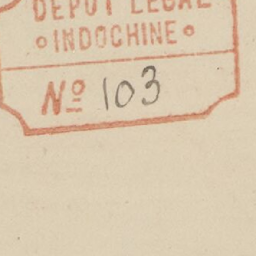 DEPOT LEGAL
INDOCHINE
Nº 103